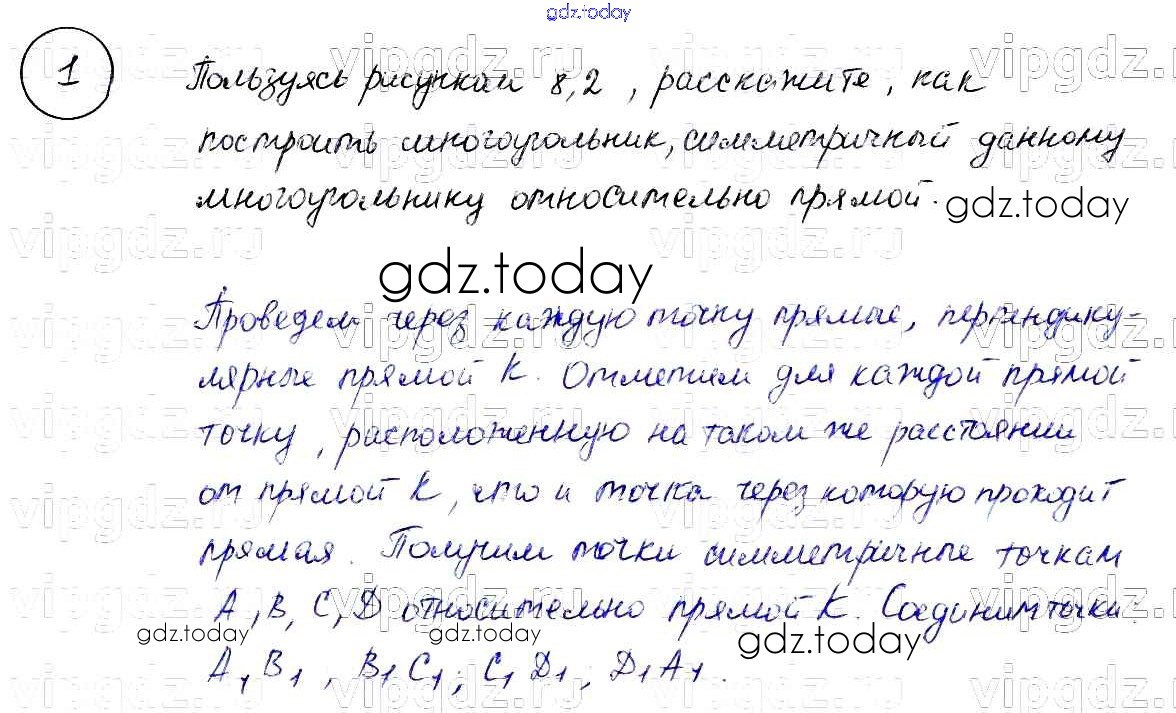 gdz.today
1
Пользуясь рисунком 8,2, расскажите, как
построить многоугольник, симметричный данному
многоугольнику относительно прямой.
gdz.today
gdz.today
Проведем через каждую точку прямые, перпендику-
лярные прямой К. Отметим для каждой прямой
точку, расположенную на таком же расстоянии
от прямой К, что и точка через которую проходит
прямая. Получим точки симметричные точкам
А, В, С, D относительно прямой К. Соединим точки
gdz.today gdz.today gdz.today
A₁B₁, B₁C₁, C₁D₁, D₁A₁.
vipgdz.ru